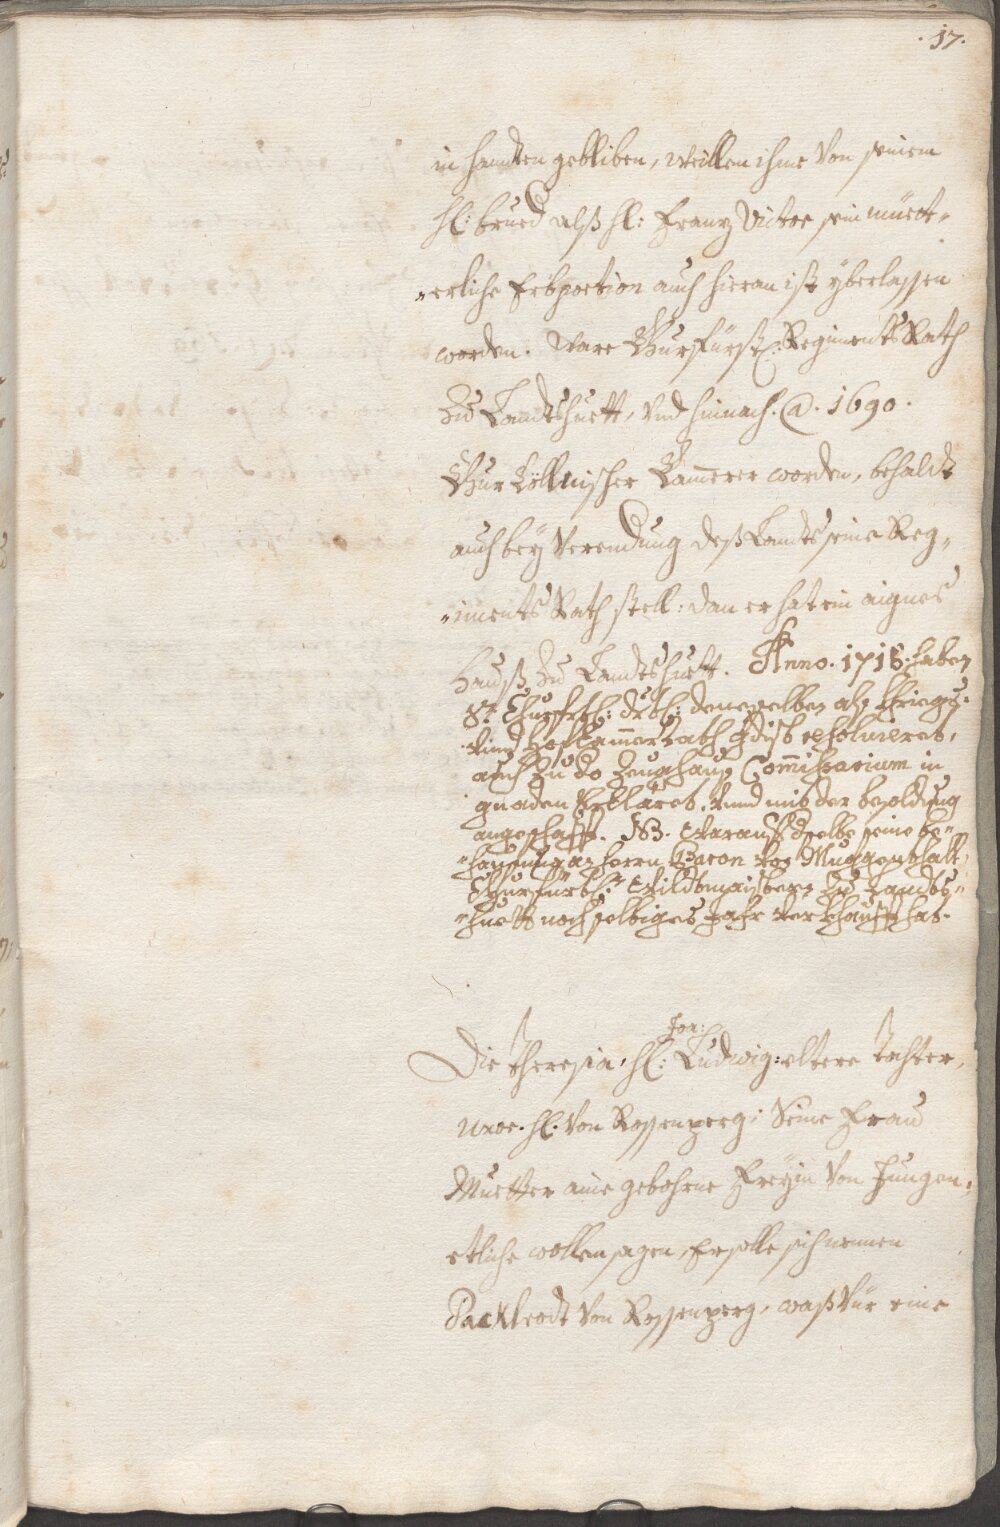 . 17.
in handten gebliben, weillen ihme von seinem
H: brued alß H: Franz Victor sein müett-
-erliche Erbportion auch hieran ist yberlassen
worden. Ware Churfürstl: Regiments Rath
zu Landtshuett, vnd hinnach. @. 1690.
Chur Cöllnischer Camerer worden, behaldt
auch bey Verendung deß Landts seine Reg-
-iments Rath stell: dan er hat ein aignes
Hauß zu Landtshuett. Anno. 1715. haben
Sr. Churfrtl: drtl: denenselben alß Kriegs-
vnnd Hofkammer Rath gdist resolvieret,
auch zu do Zeughauß Commissarium in
gnaden Erkläret, vnnd mit der besoldung
angeschafft. NB. Warauf dselbe seine be-
-hausung an Herrn Baron von Muggenthall,
Churfürtl: Wildtmaistern zu Landts-
-huett noch selbiges Jahr verkhaufft hat.
Die Theresia, H: Jon: Ludwig: eltere Tochter,
uxor. H. von Rossenperg; Seine Frau
Muetter aine gebohrne Freyin von Jungen:
etliche wollen sagen, Er solle sich nennen
Packhrodt von Rossenperg, waß Vür eine